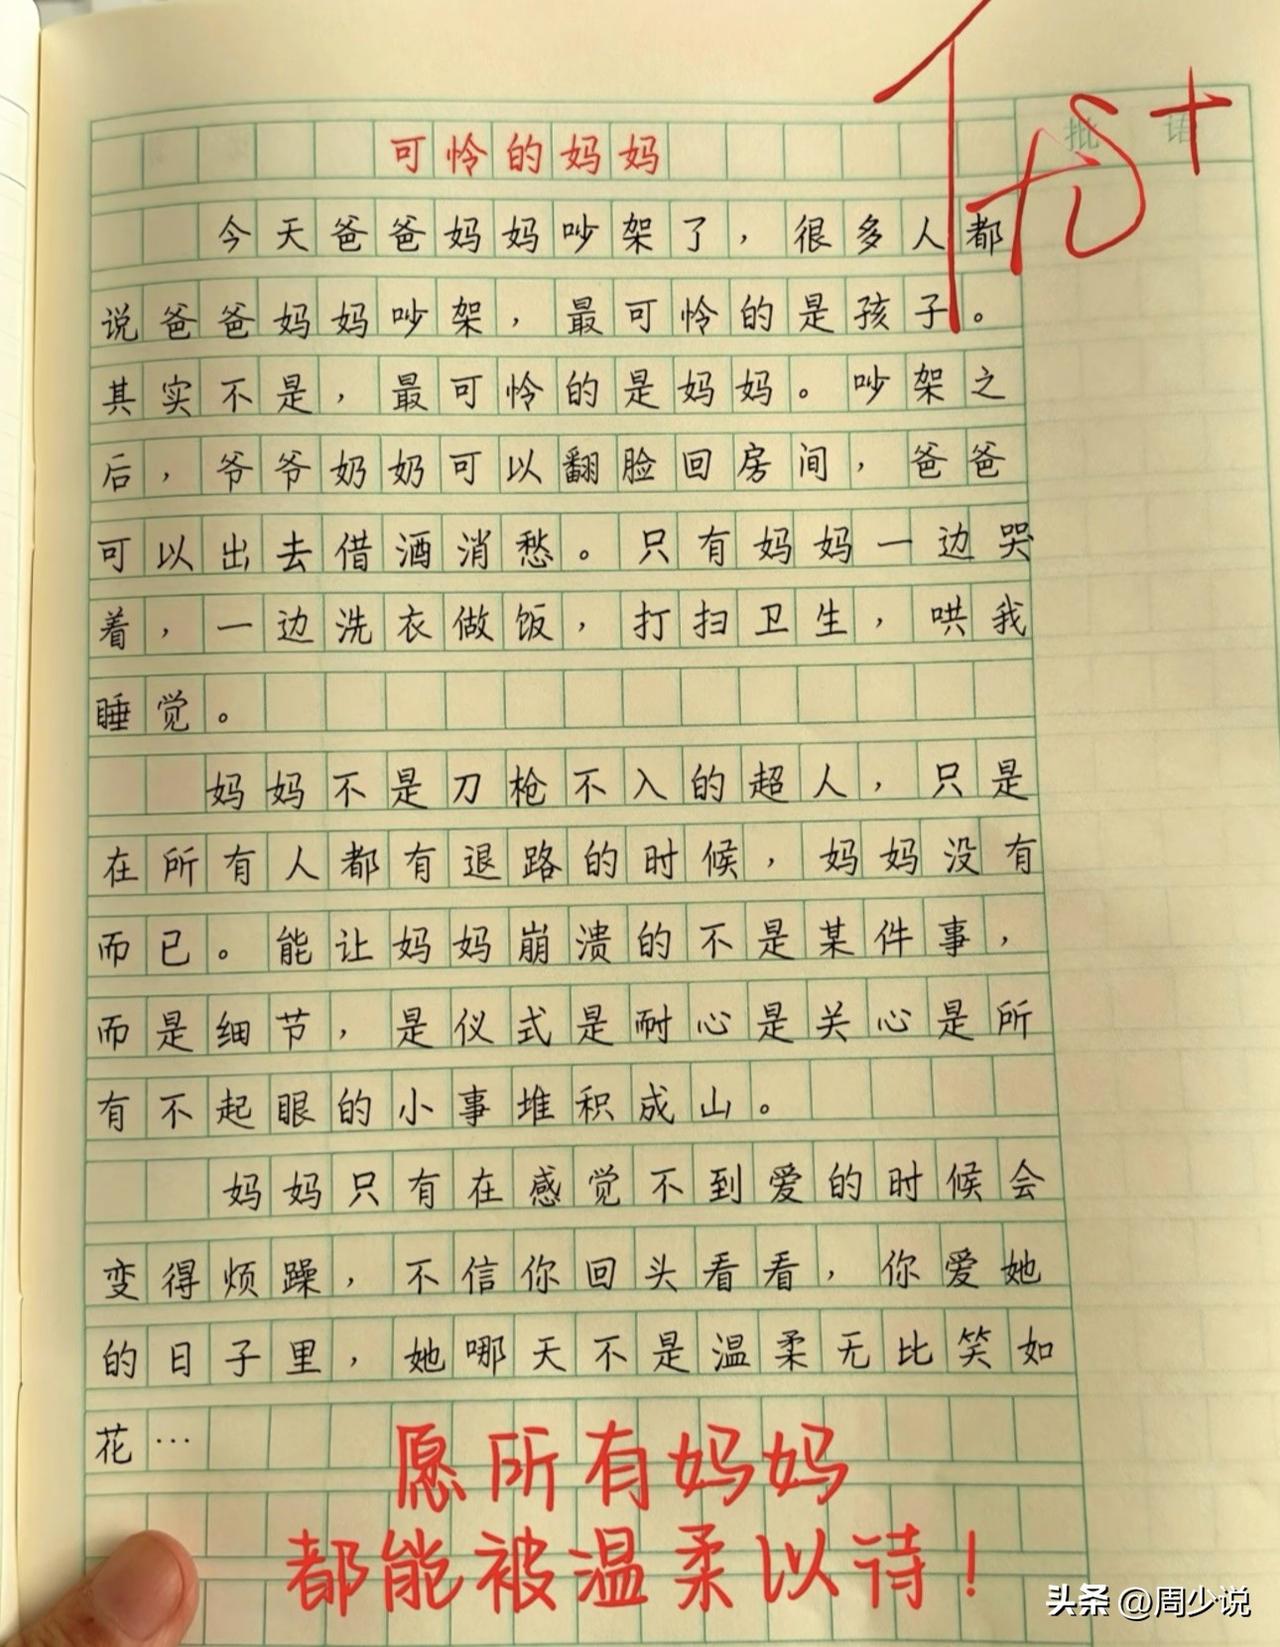 优+
批语
可怜的妈妈
今天爸爸妈妈吵架了，很多人都
说爸爸妈妈吵架，最可怜的是孩子。
其实不是，最可怜的是妈妈。吵架之
后，爷爷奶奶可以翻脸回房间，爸爸
可以出去借酒消愁。只有妈妈一边哭
着，一边洗衣做饭，打扫卫生，哄我
睡觉。
妈妈不是刀枪不入的超人，只是
在所有人都有退路的时候，妈妈没有
而已。能让妈妈崩溃的不是某件事，
而是细节，是仪式是耐心是关心是所
有不起眼的小事堆积成山。
妈妈只有在感觉不到爱的时候会
变得烦躁，不信你回头看看，你爱她
的日子里，她哪天不是温柔无比笑如
花…
愿所有妈妈
都能被温柔以诗！
头条 @周少说